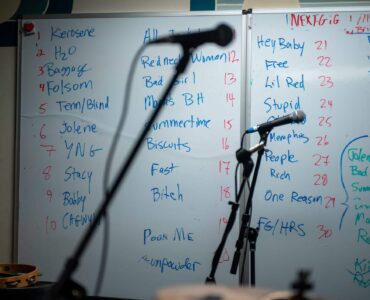 1 Kerosene
2 H2O
3 Baggage
4 Folsom
5 Tenn/Blind
6 Jolene
7 YNG
8 Stacy
9 Bobby
10
Redneck Woman 12
Bad Girl 13
BH 14
Summertime 15
Biscuits 16
Fast 17
Bitch 18
Poor Me
Gunpowder
NEXT GIG
Hey Baby 21
Free 22
Lil Red 23
Stupid 24
Memphis 25
People 26
Rich 28
One Reason 29
FG/HRS 30
Bad